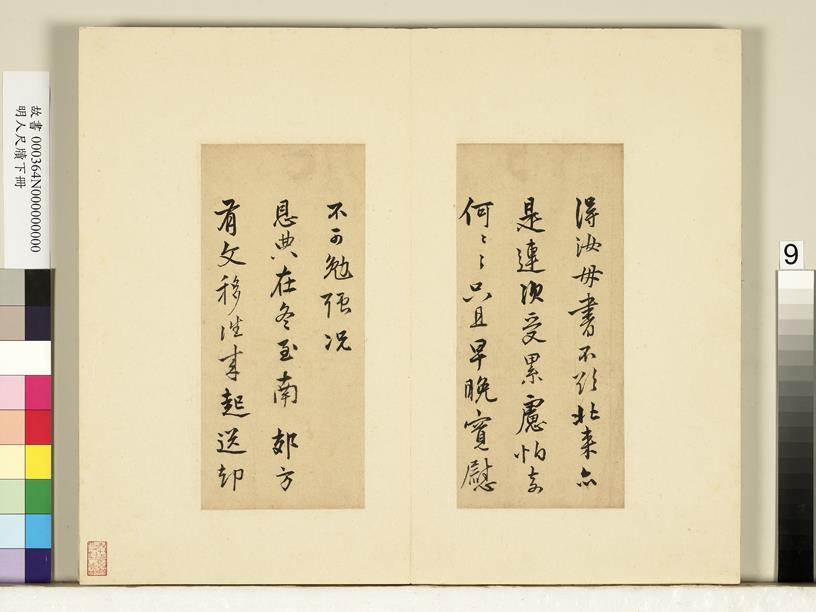 得汝母書不欲北來亦
是連次受累慮怕奈
何〻只且早晚寬慰
不可勉強況
恩典在冬至南郊方
有文移往來起送却
故書 000364N000000000
明人尺牘下冊
9